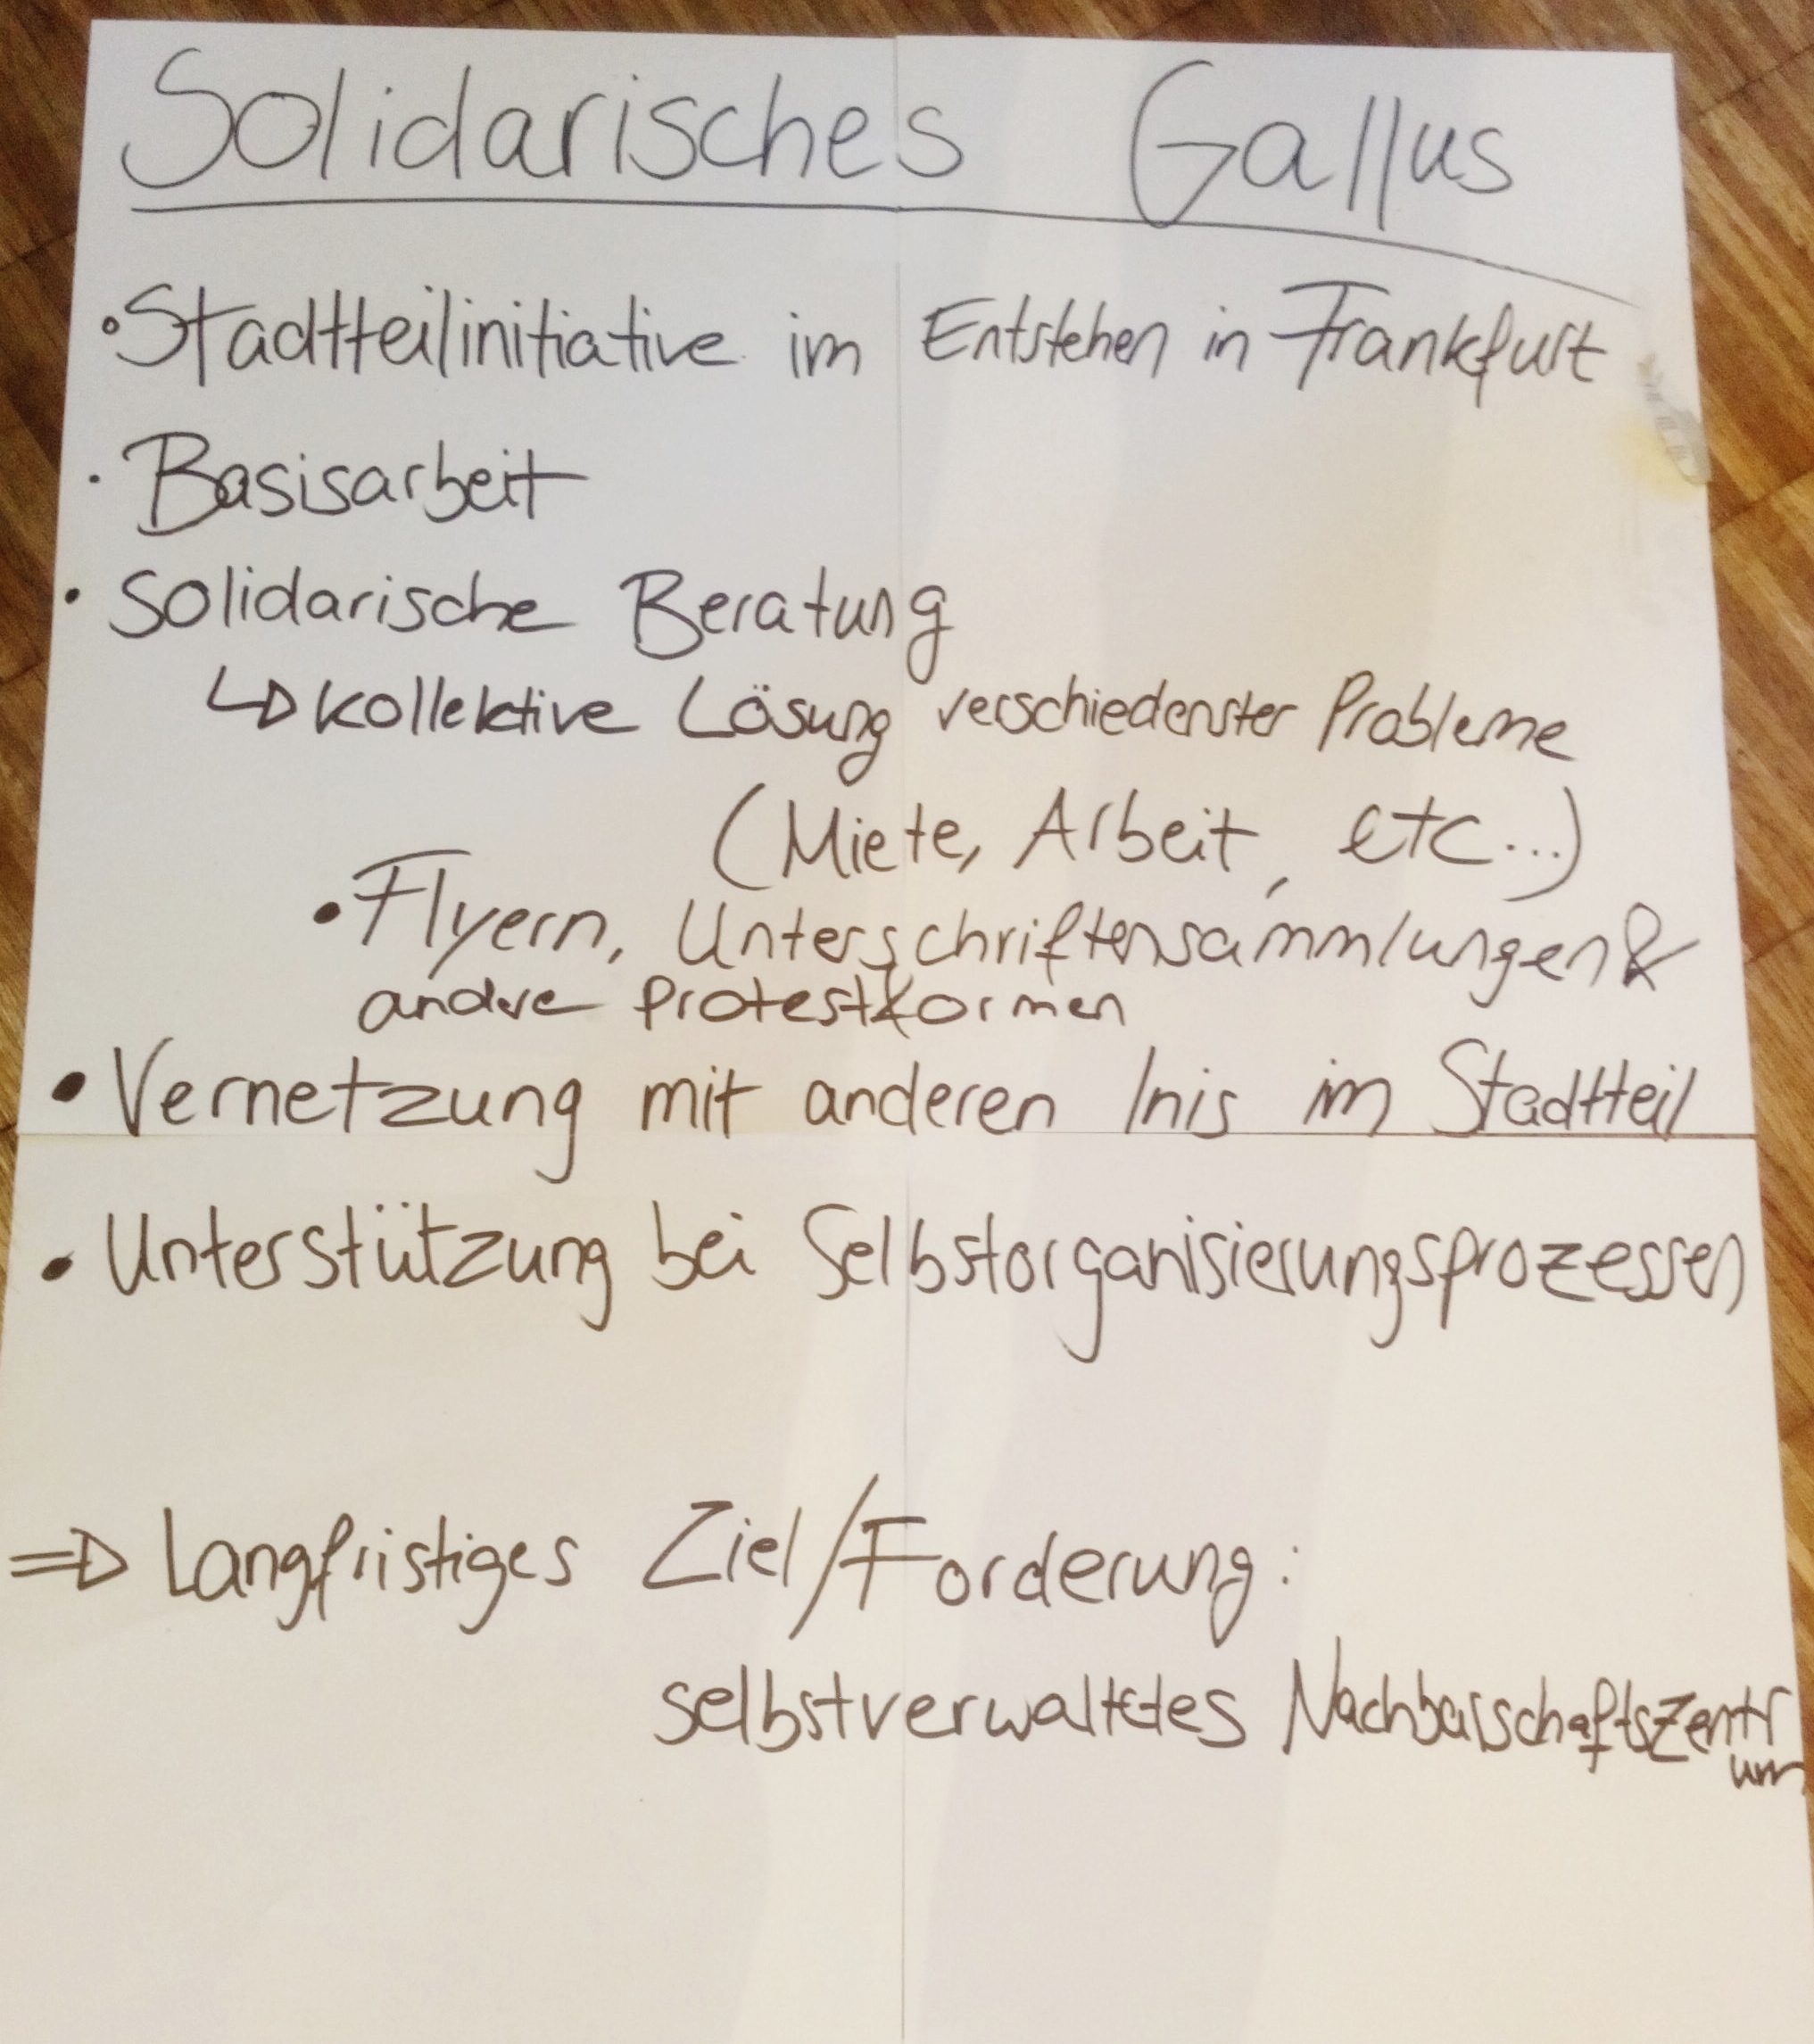 Solidarisches Gallus
• Stadtteilinitiative im Entstehen in Frankfurt
• Basisarbeit
• Solidarische Beratung
↳ kollektive Lösung verschiedenster Probleme
(Miete, Arbeit, etc...)
• Flyern, Unterschriftensammlungen &
andere Protestformen
• Vernetzung mit anderen Inis im Stadtteil
• Unterstützung bei Selbstorganisierungsprozessen
⇒ Langfristiges Ziel/Forderung:
selbstverwaltetes Nachbarschaftszentr
um